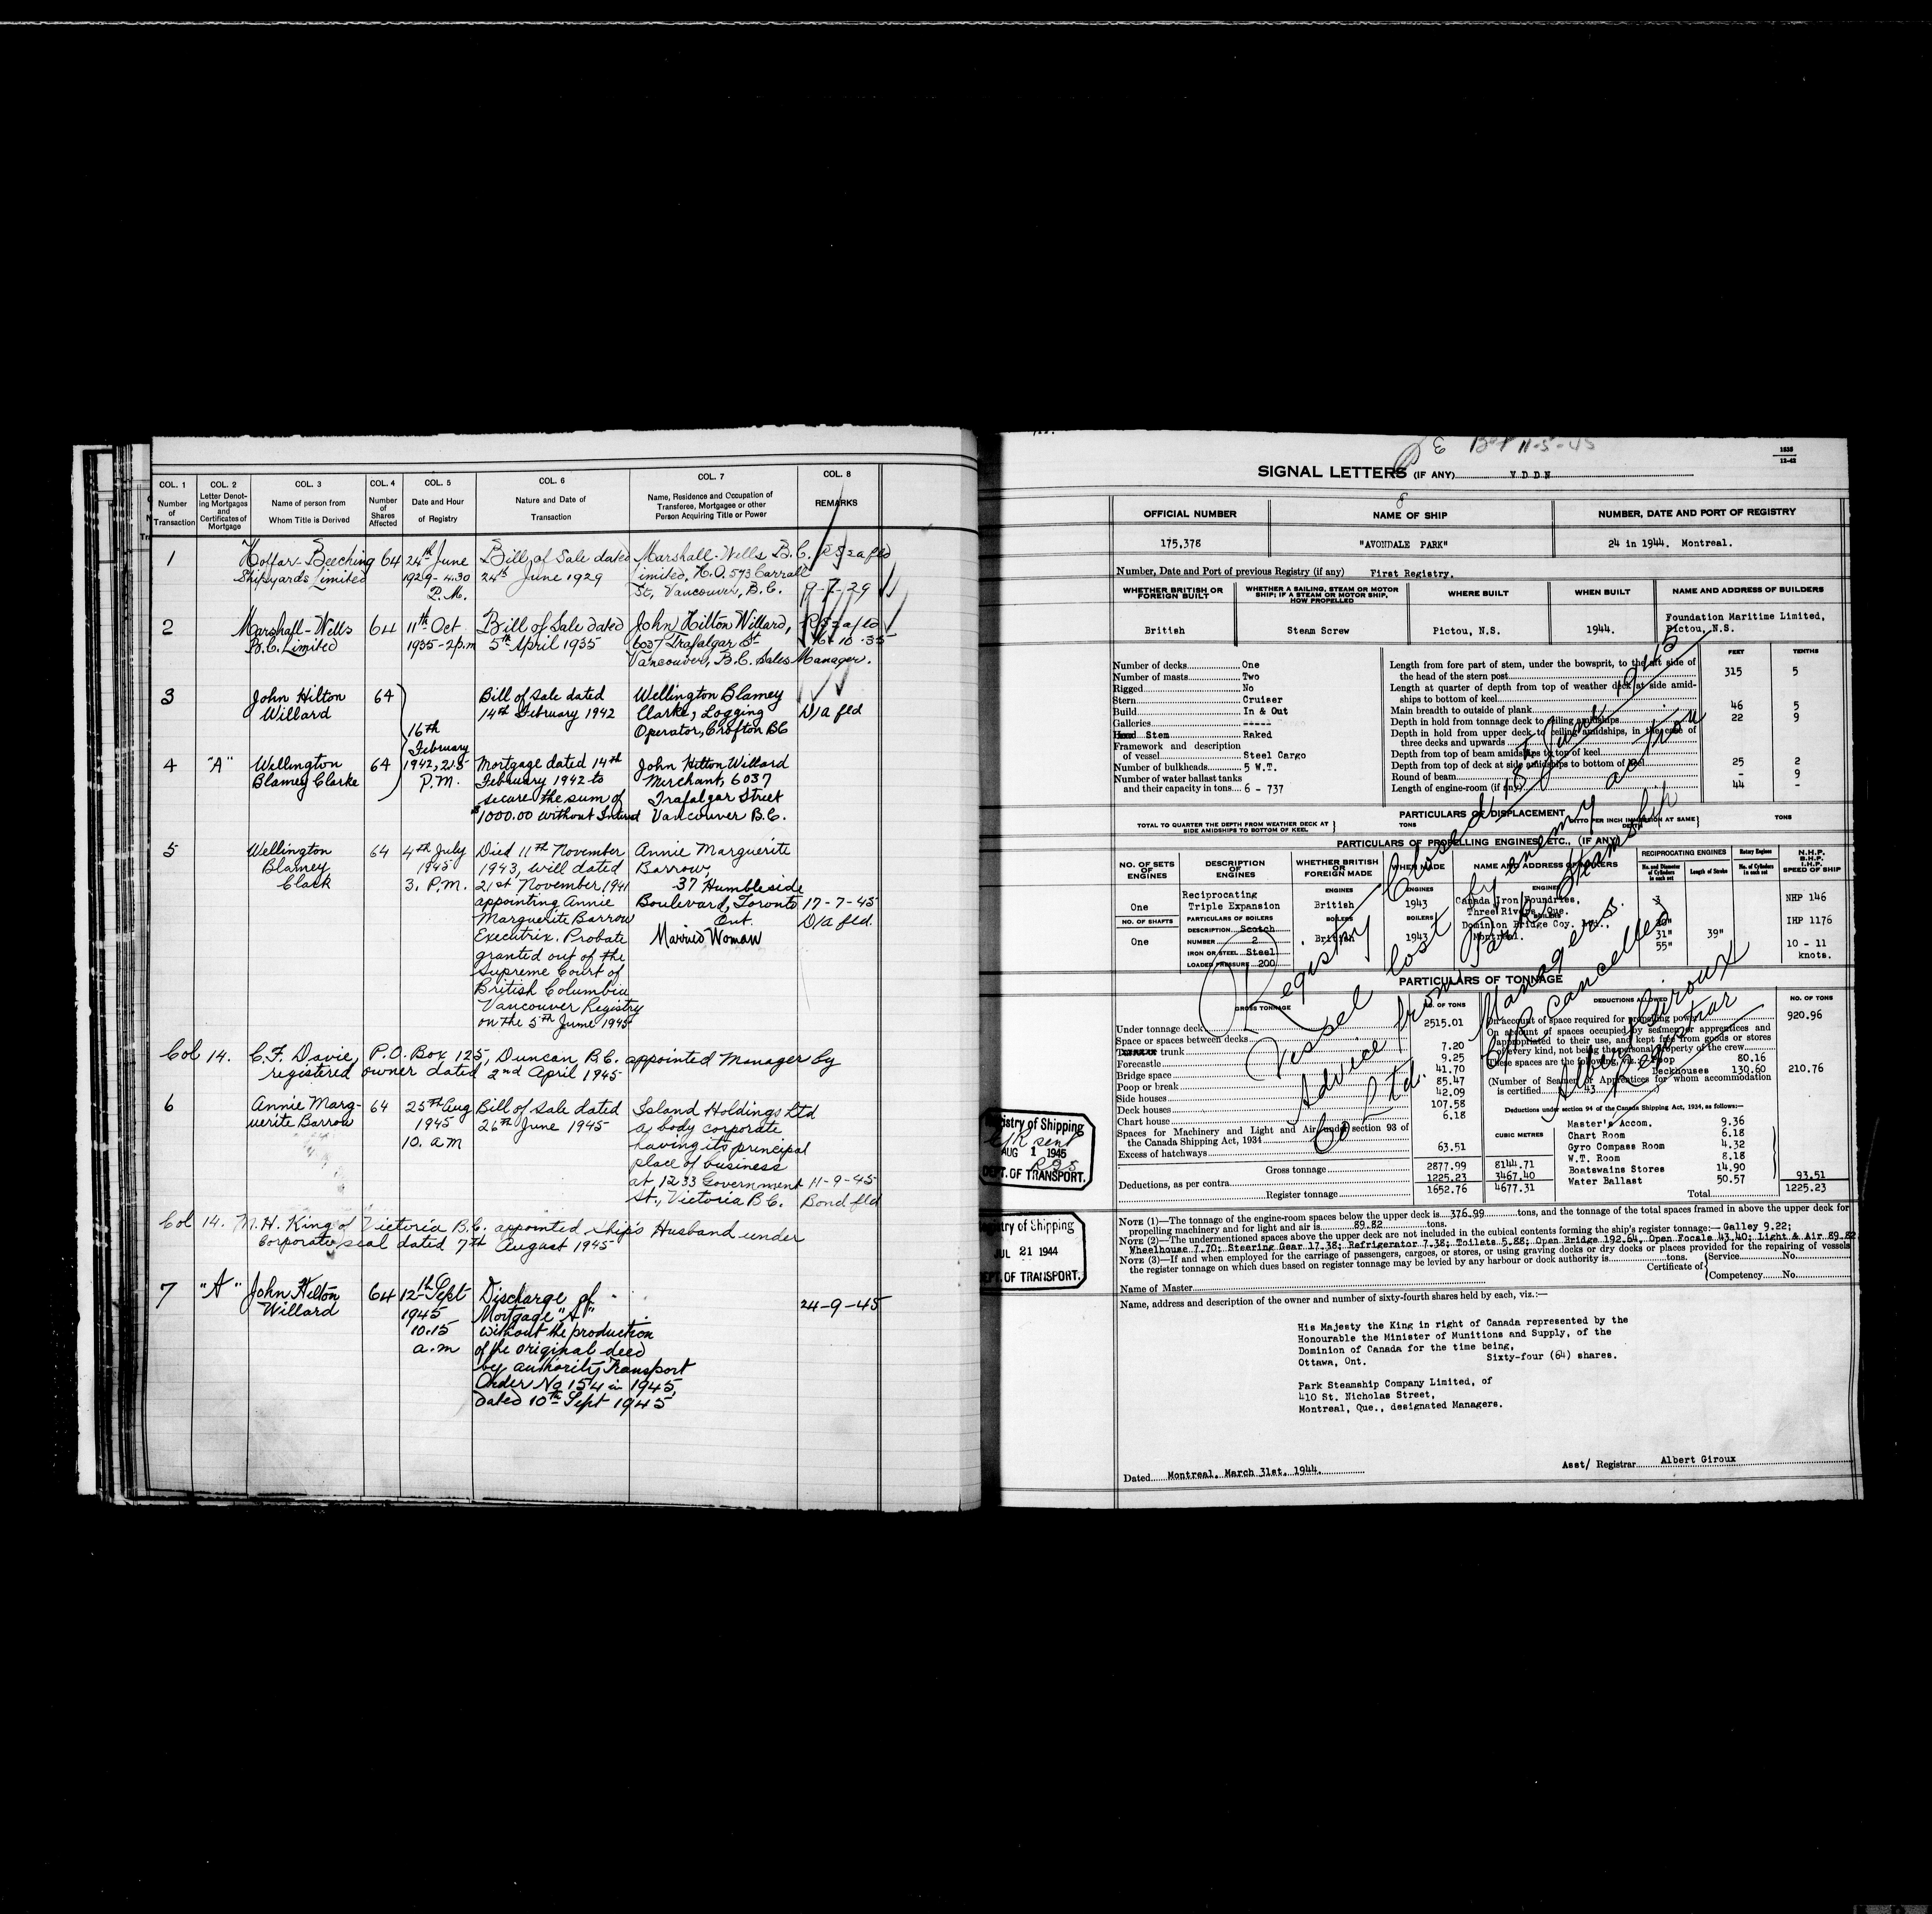 COL. 1 COL. 2 COL. 3 COL. 4 COL. 5 COL. 6 COL. 7 COL. 8
Number of Transaction
Letter Denoting Mortgages and Certificates of Mortgage
Name of person from Whom Title is Derived
Number of Shares Affected
Date and Hour of Registry
Nature and Date of Transaction
Name, Residence and Occupation of Transferee, Mortgagee or other Person Acquiring Title or Power
REMARKS
1 Hoffar-Beeching 64 24th June Bill of Sale dated Marshall-Wells B.C.
Shipyards Limited 1929-4.30 24th June 1929 Limited, H.O. 573 Carrall
P.M. St, Vancouver, B.C. 9-7-29
2 Marshall-Wells 64 11th Oct Bill of Sale dated John Hilton Willard,
B.C. Limited 1935-2p.m 5th April 1935 6037 Trafalgar St 16-10-35
Vancouver, B.C. Sales Manager.
3 John Hilton 64 Bill of Sale dated Wellington Blamey
Willard 14th February 1942 Clarke, Logging D/a fld
16th Operator, Crofton BC
February
4 "A" Wellington 64 1942, 2.15 Mortgage dated 14th John Hilton Willard
Blamey Clarke P.M. February 1942 to Merchant, 6037
secure the sum of Trafalgar Street
$1000.00 without Interest Vancouver B.C.
5 Wellington 64 4th July Died 11th November Annie Marguerite
Blamey 1945 1943, will dated Barrow,
Clark 3. P.M. 21st November 1941 37 Humbleside
appointing Annie Boulevard, Toronto 17-7-45
Marguerite Barrow Ont. D/a fld.
Executrix. Probate Married Woman
granted out of the
Supreme Court of
British Columbia
Vancouver Registry
on the 5th June 1945
Col 14. C.F. Davie, P.O. Box 125, Duncan B.C. appointed Manager by
registered owner dated 2nd April 1945
6 Annie Marg- 64 25th Aug Bill of Sale dated Island Holdings Ltd
uerite Barrow 1945 26th June 1945 a body corporate
10. a.m having its principal
place of business
at 1233 Government 11-9-45
St., Victoria B.C. Bond fld
Col 14. M.H. King of Victoria B.C. appointed ship's Husband under
Corporate seal dated 7th August 1945
7 "A" John Hilton 64 12th Sept Discharge of
Willard 1945 Mortgage "A" 24-9-45
10.15 without the production
a.m of the original deed
by authority Transport
Order No 154 in 1945
dated 10th Sept 1945
11-5-45
1835
12-42
SIGNAL LETTERS (IF ANY) V D D N
OFFICIAL NUMBER NAME OF SHIP NUMBER, DATE AND PORT OF REGISTRY
175,378 "AVONDALE PARK" 24 in 1944. Montreal.
Number, Date and Port of previous Registry (if any) First Registry.
WHETHER BRITISH OR FOREIGN BUILT
WHETHER A SAILING, STEAM OR MOTOR SHIP; IF A STEAM OR MOTOR SHIP, HOW PROPELLED
WHERE BUILT WHEN BUILT NAME AND ADDRESS OF BUILDERS
British Steam Screw Pictou, N.S. 1944. Foundation Maritime Limited,
Pictou, N.S.
FEET TENTHS
Number of decks One
Number of masts Two
Rigged No
Stern Cruiser
Build In & Out
Galleries -----
Head Stem Raked
Framework and description
of vessel Steel Cargo
Number of bulkheads 5 W.T.
Number of water ballast tanks
and their capacity in tons 6 - 737
Length from fore part of stem, under the bowsprit, to the aft side of
the head of the stern post 315 5
Length at quarter of depth from top of weather deck at side amid-
ships to bottom of keel
Main breadth to outside of plank 46 5
Depth in hold from tonnage deck to ceiling amidships 22 9
Depth in hold from upper deck to ceiling amidships, in the case of
three decks and upwards
Depth from top of beam amidships to top of keel
Depth from top of deck at side amidships to bottom of keel 25 2
Round of beam - 9
Length of engine-room (if any) 44 -
PARTICULARS OF DISPLACEMENT
TOTAL TO QUARTER THE DEPTH FROM WEATHER DECK AT SIDE AMIDSHIPS TO BOTTOM OF KEEL
TONS
DITTO PER INCH IMMERSION AT SAME DEPTH
TONS
PARTICULARS OF PROPELLING ENGINES, ETC., (IF ANY)
NO. OF SETS OF ENGINES
DESCRIPTION OF ENGINES
WHETHER BRITISH OR FOREIGN MADE
WHEN MADE
NAME AND ADDRESS OF MAKERS
RECIPROCATING ENGINES
No. and Diameter of Cylinders in each set
Length of Stroke
Rotary Engines
No. of Cylinders in each set
N.H.P.
B.H.P.
I.H.P.
SPEED OF SHIP
ENGINES ENGINES ENGINES
One Reciprocating Triple Expansion British 1943 Canada Iron Foundries, Three Rivers, Que. 3 NHP 146
NO. OF SHAFTS PARTICULARS OF BOILERS BOILERS BOILERS BOILERS
DESCRIPTION Scotch
One NUMBER 2 British 1943 Dominion Bridge Coy. Ltd., Montreal. IHP 1176
31" 39"
55" 10 - 11 knots.
IRON OR STEEL Steel
LOADED PRESSURE 200
PARTICULARS OF TONNAGE
GROSS TONNAGE NO. OF TONS
Under tonnage deck 2515.01
Space or spaces between decks
trunk 7.20
Forecastle 9.25
Bridge space 41.70
Poop or break 85.47
Side houses 42.09
Deck houses 107.58
Chart house 6.18
Spaces for Machinery and Light and Air, under section 93 of
the Canada Shipping Act, 1934
Excess of hatchways 63.51
CUBIC METRES
Gross tonnage 2877.99 8144.71
Deductions, as per contra 1225.23 3467.40
Register tonnage 1652.76 4677.31
DEDUCTIONS ALLOWED NO. OF TONS
On account of space required for propelling power 920.96
On account of spaces occupied by seamen or apprentices and
appropriated to their use, and kept free from goods or stores
of every kind, not being the personal property of the crew
These spaces are the following, viz.: Poop 80.16
Deckhouses 130.60 210.76
(Number of Seamen or Apprentices for whom accommodation
is certified 43)
Deductions under section 94 of the Canada Shipping Act, 1934, as follows:—
Master's Accom. 9.36
Chart Room 6.18
Gyro Compass Room 4.32
W.T. Room 8.18
Boatswains Stores 14.90
Water Ballast 50.57 93.51
Total 1225.23
Registry Closed 18th June 1945
Vessel lost by enemy action
Advice from Park Steamship
Co Ltd. Managers.
C.R. cancelled
Albert Giroux
Registrar
Registry of Shipping
sent
AUG 1 1945
DEPT. OF TRANSPORT.
Registry of Shipping
JUL 21 1944
DEPT. OF TRANSPORT.
NOTE (1)—The tonnage of the engine-room spaces below the upper deck is 376.99 tons, and the tonnage of the total spaces framed in above the upper deck for
propelling machinery and for light and air is 89.82 tons.
NOTE (2)—The undermentioned spaces above the upper deck are not included in the cubical contents forming the ship's register tonnage:— Galley 9.22;
Wheelhouse 7.70; Steering Gear 17.38; Refrigerator 7.38; Toilets 5.88; Open Bridge 192.64, Open Focsle 43.40; Light & Air 89.82
NOTE (3)—If and when employed for the carriage of passengers, cargoes, or stores, or using graving docks or dry docks or places provided for the repairing of vessels
the register tonnage on which dues based on register tonnage may be levied by any harbour or dock authority is tons.
Certificate of (Service No.
(Competency No.
Name of Master
Name, address and description of the owner and number of sixty-fourth shares held by each, viz.:—
His Majesty the King in right of Canada represented by the
Honourable the Minister of Munitions and Supply, of the
Dominion of Canada for the time being,
Ottawa, Ont. Sixty-four (64) shares.
Park Steamship Company Limited, of
410 St. Nicholas Street,
Montreal, Que., designated Managers.
Dated Montreal, March 31st, 1944. Asst/ Registrar Albert Giroux